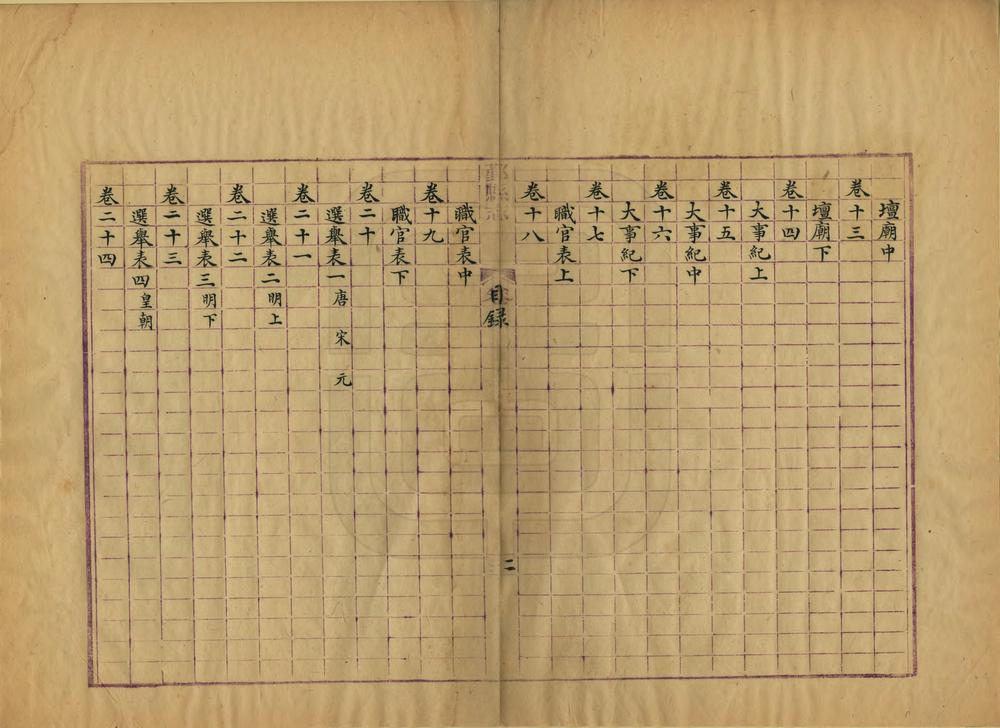 壇廟中
卷十三
壇廟下
卷十四
大事紀上
卷十五
大事紀中
卷十六
大事紀下
卷十七
職官表上
卷十八
目録
二
職官表中
卷十九
職官表下
卷二十
選舉表一唐 宋 元
卷二十一
選舉表二明上
卷二十二
選舉表三明下
卷二十三
選舉表四皇朝
卷二十四